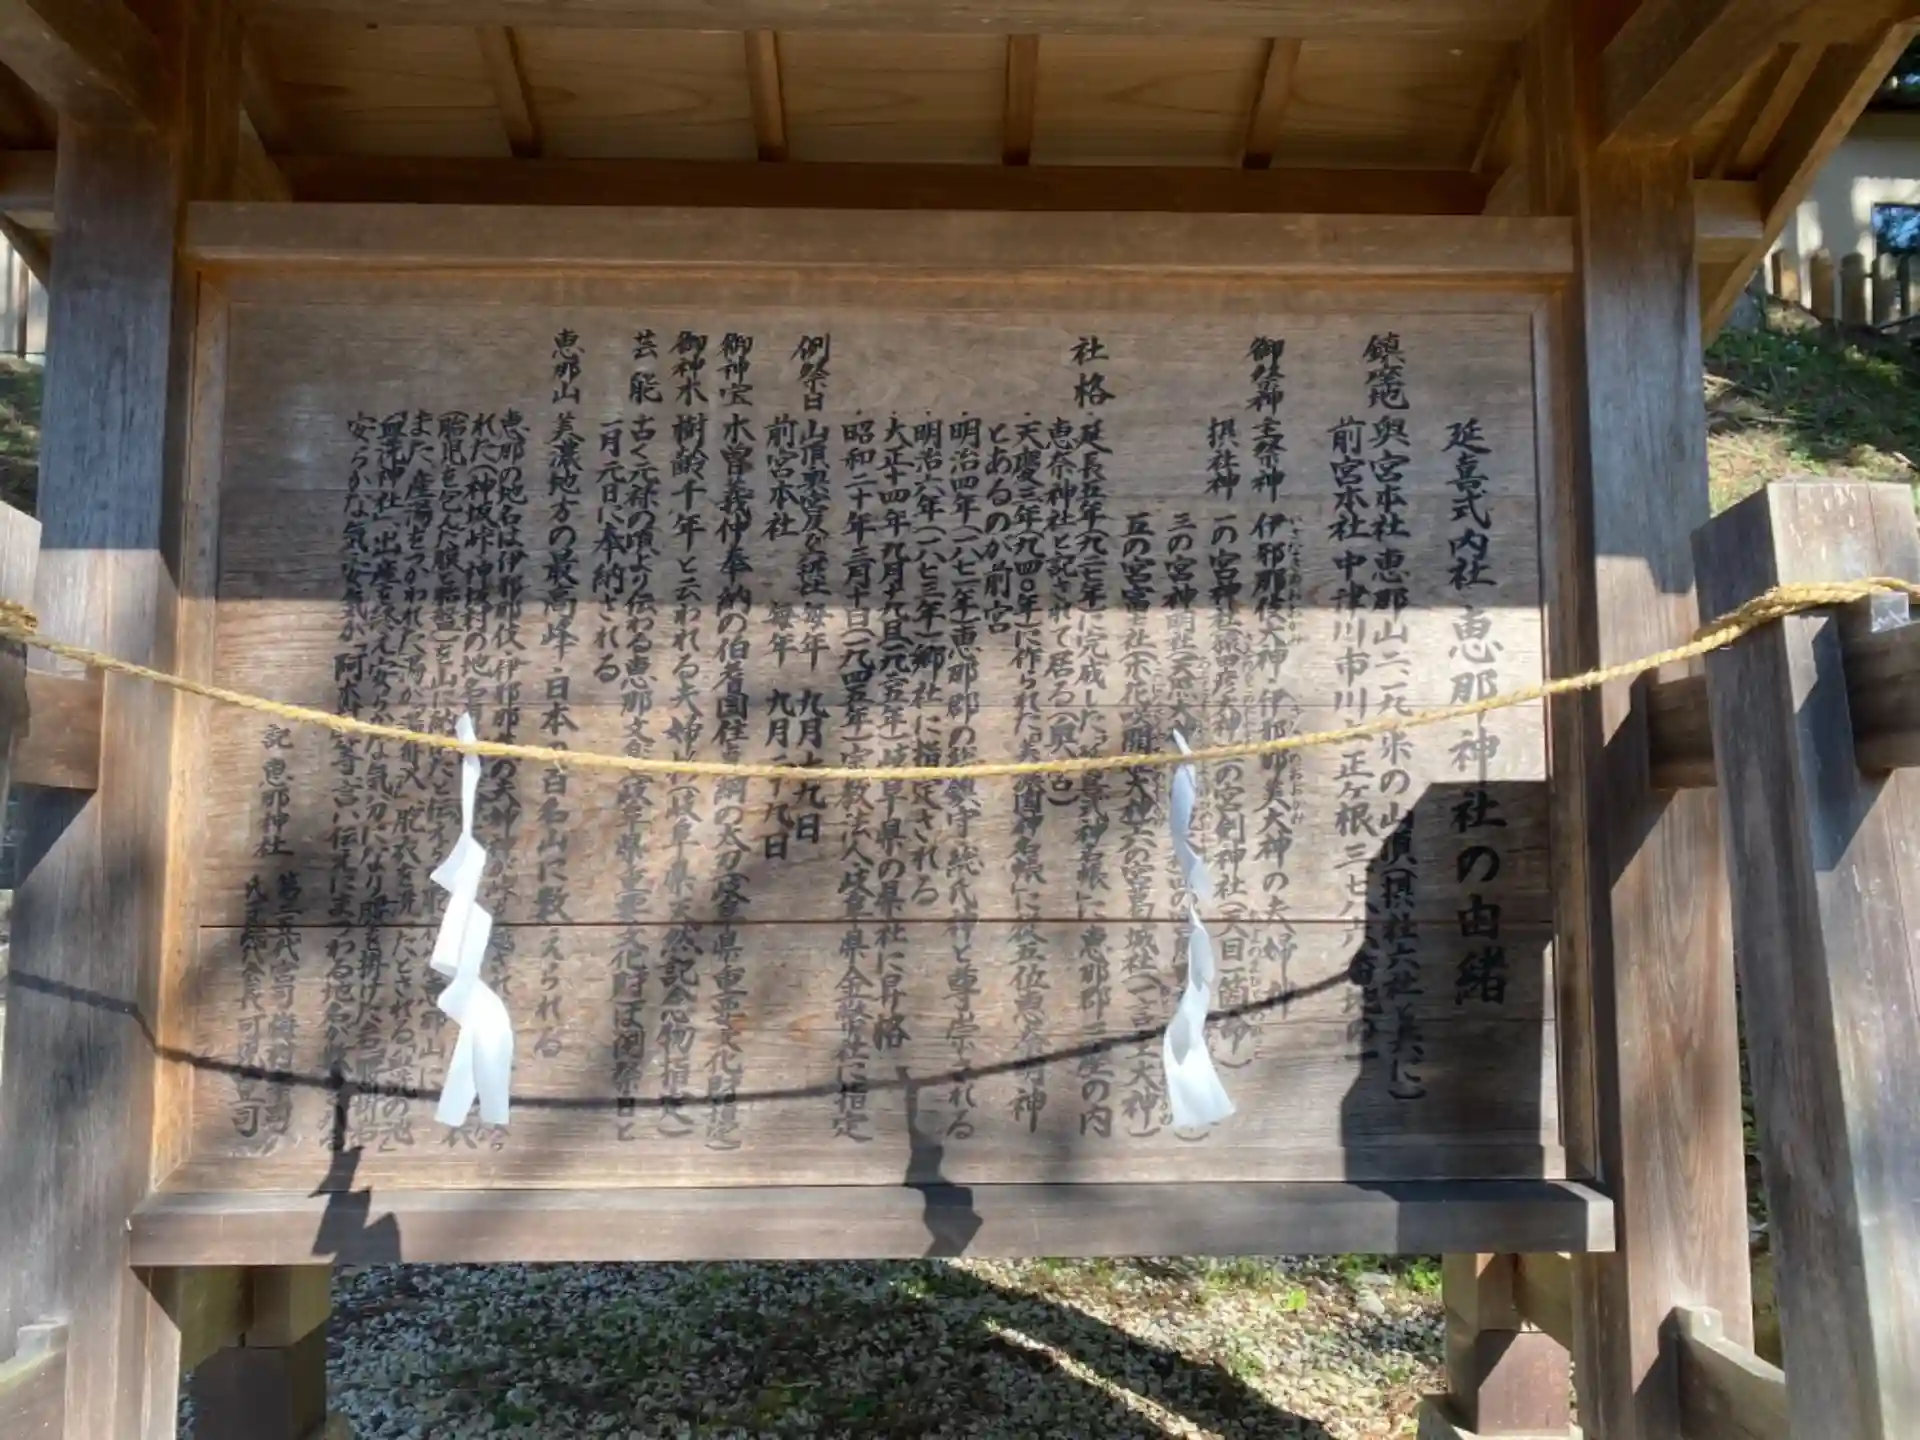 延喜式内社 恵那神社の由緒
鎮座地 奥宮本社 恵那山二一九一米の山頂(摂社六社と共に)
前宮本社 中津川市川上正ヶ根三七八六番地の一
御祭神 主祭神 伊邪那伎大神・伊邪那美大神の夫婦神
摂社神 一の宮神社(猿田彦大神)二の宮剣神社(天目一箇命)
三の宮神明社(天照大
五の宮富士社(木花咲開 六の宮葛城社(一言主大神)
社格 ・延長五年(九二七年)に完成した「延喜式神名帳」に恵那郡三座の内
恵奈神社と記されて居る(奥宮)
・天慶三年(九四〇年)に作られた「美濃国神名帳」に従五位恵奈明神
とあるのが前宮
・明治四年(一八七一年)恵那郡の総鎮守・総氏神と尊崇される
・明治六年(一八七三年)郷社に指定される
・大正十四年九月十九日 岐阜県の県社に昇格
・昭和二十年三月十日(一九四五年)宗教法人岐阜県金幣社に指定
例祭日 山頂奥宮及び摂社 毎年 九月十九日
前宮本社 毎年 九月二十九日
御神宝 木曽義仲奉納の伯耆国住 綱の太刀(岐阜県重要文化財指定)
御神木 樹齢千年と云われる夫婦杉(岐阜県天然記念物指定)
芸能 古く元禄の頃より伝わる恵那文楽(岐阜県重要文化財)は例祭日と
一月元日に奉納される
恵那山 美濃地方の最高峰・日本の百名山に数えられる
恵那の地名は伊邪那伎・伊邪那美の
れた(神坂峠・神坂村の地名
胎児を包んだ膜と胎盤)を山に納めたと伝える
また、産湯をつかわれた湯が「湯舟沢」、胞衣を洗ったとされる「血洗の池」
「血洗神社」、出産を終え安らかな気分になり腰を掛けた岩
安らかな気「安気」が「阿木」等言い伝えにまつわる地名が
記 恵那神社 第二五代宮司